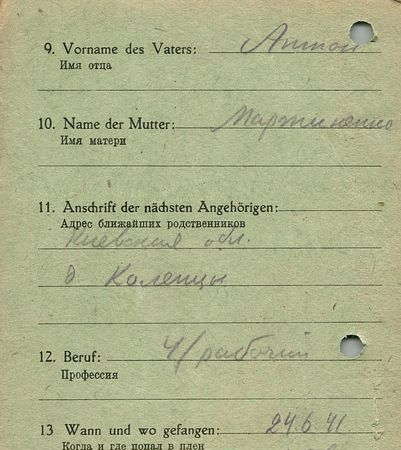 9. Vorname des Vaters: Антон
Имя отца
10. Name der Mutter: Мартиненко
Имя матери
11. Anschrift der nächsten Angehörigen:
Адрес ближайших родственников
Киевская обл.
д. Коленцы
12. Beruf: ч/рабочий
Профессия
13 Wann und wo gefangen: 24.6.41
Когда и где попал в плен